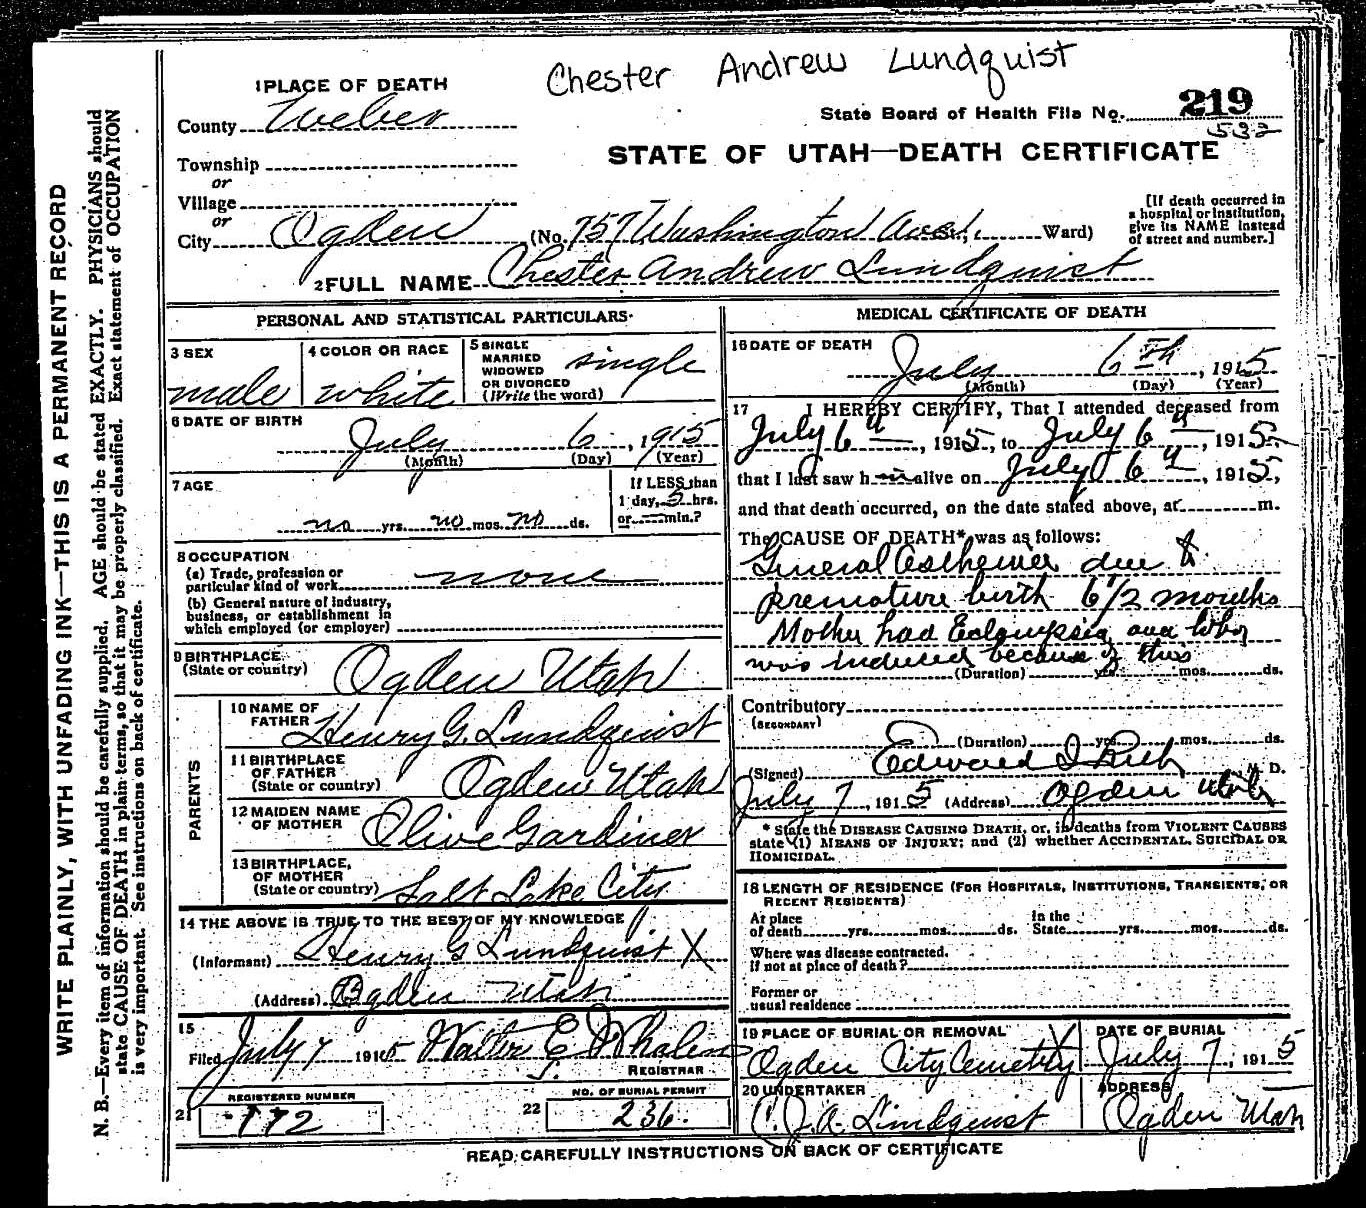 Chester Andrew Lundquist
1 PLACE OF DEATH
County Weber
State Board of Health File No. 219
532
STATE OF UTAH—DEATH CERTIFICATE
Township
or
Village
or
City Ogden (No. 757 Washington Ave. St., Ward)
[If death occurred in
a hospital or institution,
give its NAME instead
of street and number.]
2 FULL NAME Chester Andrew Lundquist
PERSONAL AND STATISTICAL PARTICULARS
3 SEX
male
4 COLOR OR RACE
white
5 SINGLE
MARRIED
WIDOWED
OR DIVORCED
(Write the word)
single
6 DATE OF BIRTH
July 6, 1915
(Month) (Day) (Year)
7 AGE
no yrs. no mos. no ds.
If LESS than
1 day, 5 hrs.
or — min.?
8 OCCUPATION
(a) Trade, profession or
particular kind of work none
(b) General nature of industry,
business, or establishment in
which employed (or employer)
9 BIRTHPLACE
(State or country)
Ogden Utah
PARENTS
10 NAME OF
FATHER
Henry G. Lundquist
11 BIRTHPLACE
OF FATHER
(State or country)
Ogden Utah
12 MAIDEN NAME
OF MOTHER
Olive Gardiner
13 BIRTHPLACE,
OF MOTHER
(State or country)
Salt Lake City
14 THE ABOVE IS TRUE TO THE BEST OF MY KNOWLEDGE
(Informant) Henry G Lundquist X
(Address) Ogden Utah
15
Filed July 7 1915 Walter E Whalen
REGISTRAR
21 REGISTERED NUMBER
172
22 NO. OF BURIAL PERMIT
236.
MEDICAL CERTIFICATE OF DEATH
16 DATE OF DEATH
July 6th, 1915
(Month) (Day) (Year)
17 I HEREBY CERTIFY, That I attended deceased from
July 6th, 1915, to July 6th, 1915,
that I last saw h im alive on July 6th, 1915,
and that death occurred, on the date stated above, at m.
The CAUSE OF DEATH* was as follows:
General due to
premature birth 6 1/2 months
Mother had Eclampsia and labor
was induced because of this
(Duration) yrs. mos. ds.
Contributory
(SECONDARY)
(Duration) yrs. mos. ds.
(Signed) Edward I Rich M. D.
July 7, 1915 (Address) Ogden Utah
* State the DISEASE CAUSING DEATH, or, in deaths from VIOLENT CAUSES
state (1) MEANS OF INJURY; and (2) whether ACCIDENTAL, SUICIDAL OR
HOMICIDAL.
18 LENGTH OF RESIDENCE (FOR HOSPITALS, INSTITUTIONS, TRANSIENTS, OR
RECENT RESIDENTS)
At place
of death yrs. mos. ds.
In the
State yrs. mos. ds.
Where was disease contracted.
if not at place of death?
Former or
usual residence
19 PLACE OF BURIAL OR REMOVAL
Ogden City Cemetery
DATE OF BURIAL
July 7, 1915
20 UNDERTAKER
C. J. A. Lindquist
ADDRESS
Ogden Utah
READ CAREFULLY INSTRUCTIONS ON BACK OF CERTIFICATE
WRITE PLAINLY, WITH UNFADING INK—THIS IS A PERMANENT RECORD
N. B.—Every item of information should be carefully supplied. AGE should be stated EXACTLY. PHYSICIANS should
state CAUSE OF DEATH in plain terms, so that it may be properly classified. Exact statement of OCCUPATION
is very important. See instructions on back of certificate.